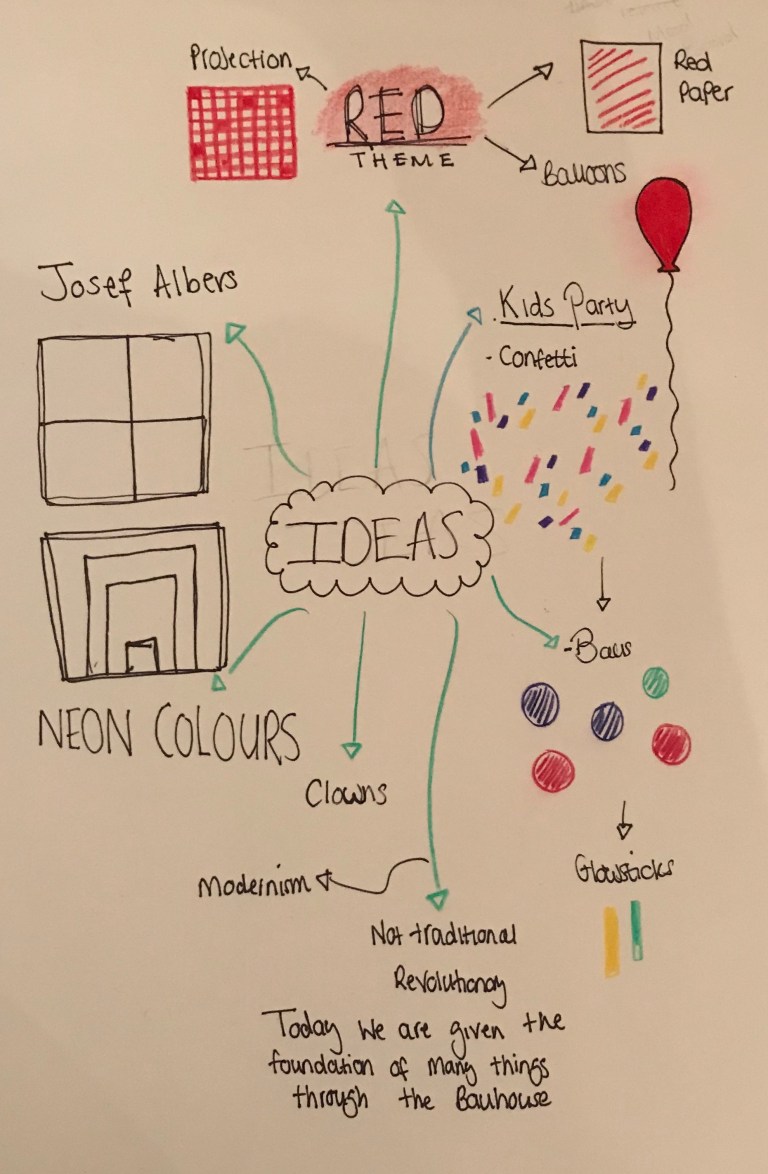 Projection
RED
THEME
Red
Paper
Balloons
Josef Albers
Kids Party
- Confetti
IDEAS
- Balls
NEON COLOURS
Clowns
Glowsticks
Modernism
Not traditional
Revolutionary
Today we are given the
foundation of many things
through the Bauhouse